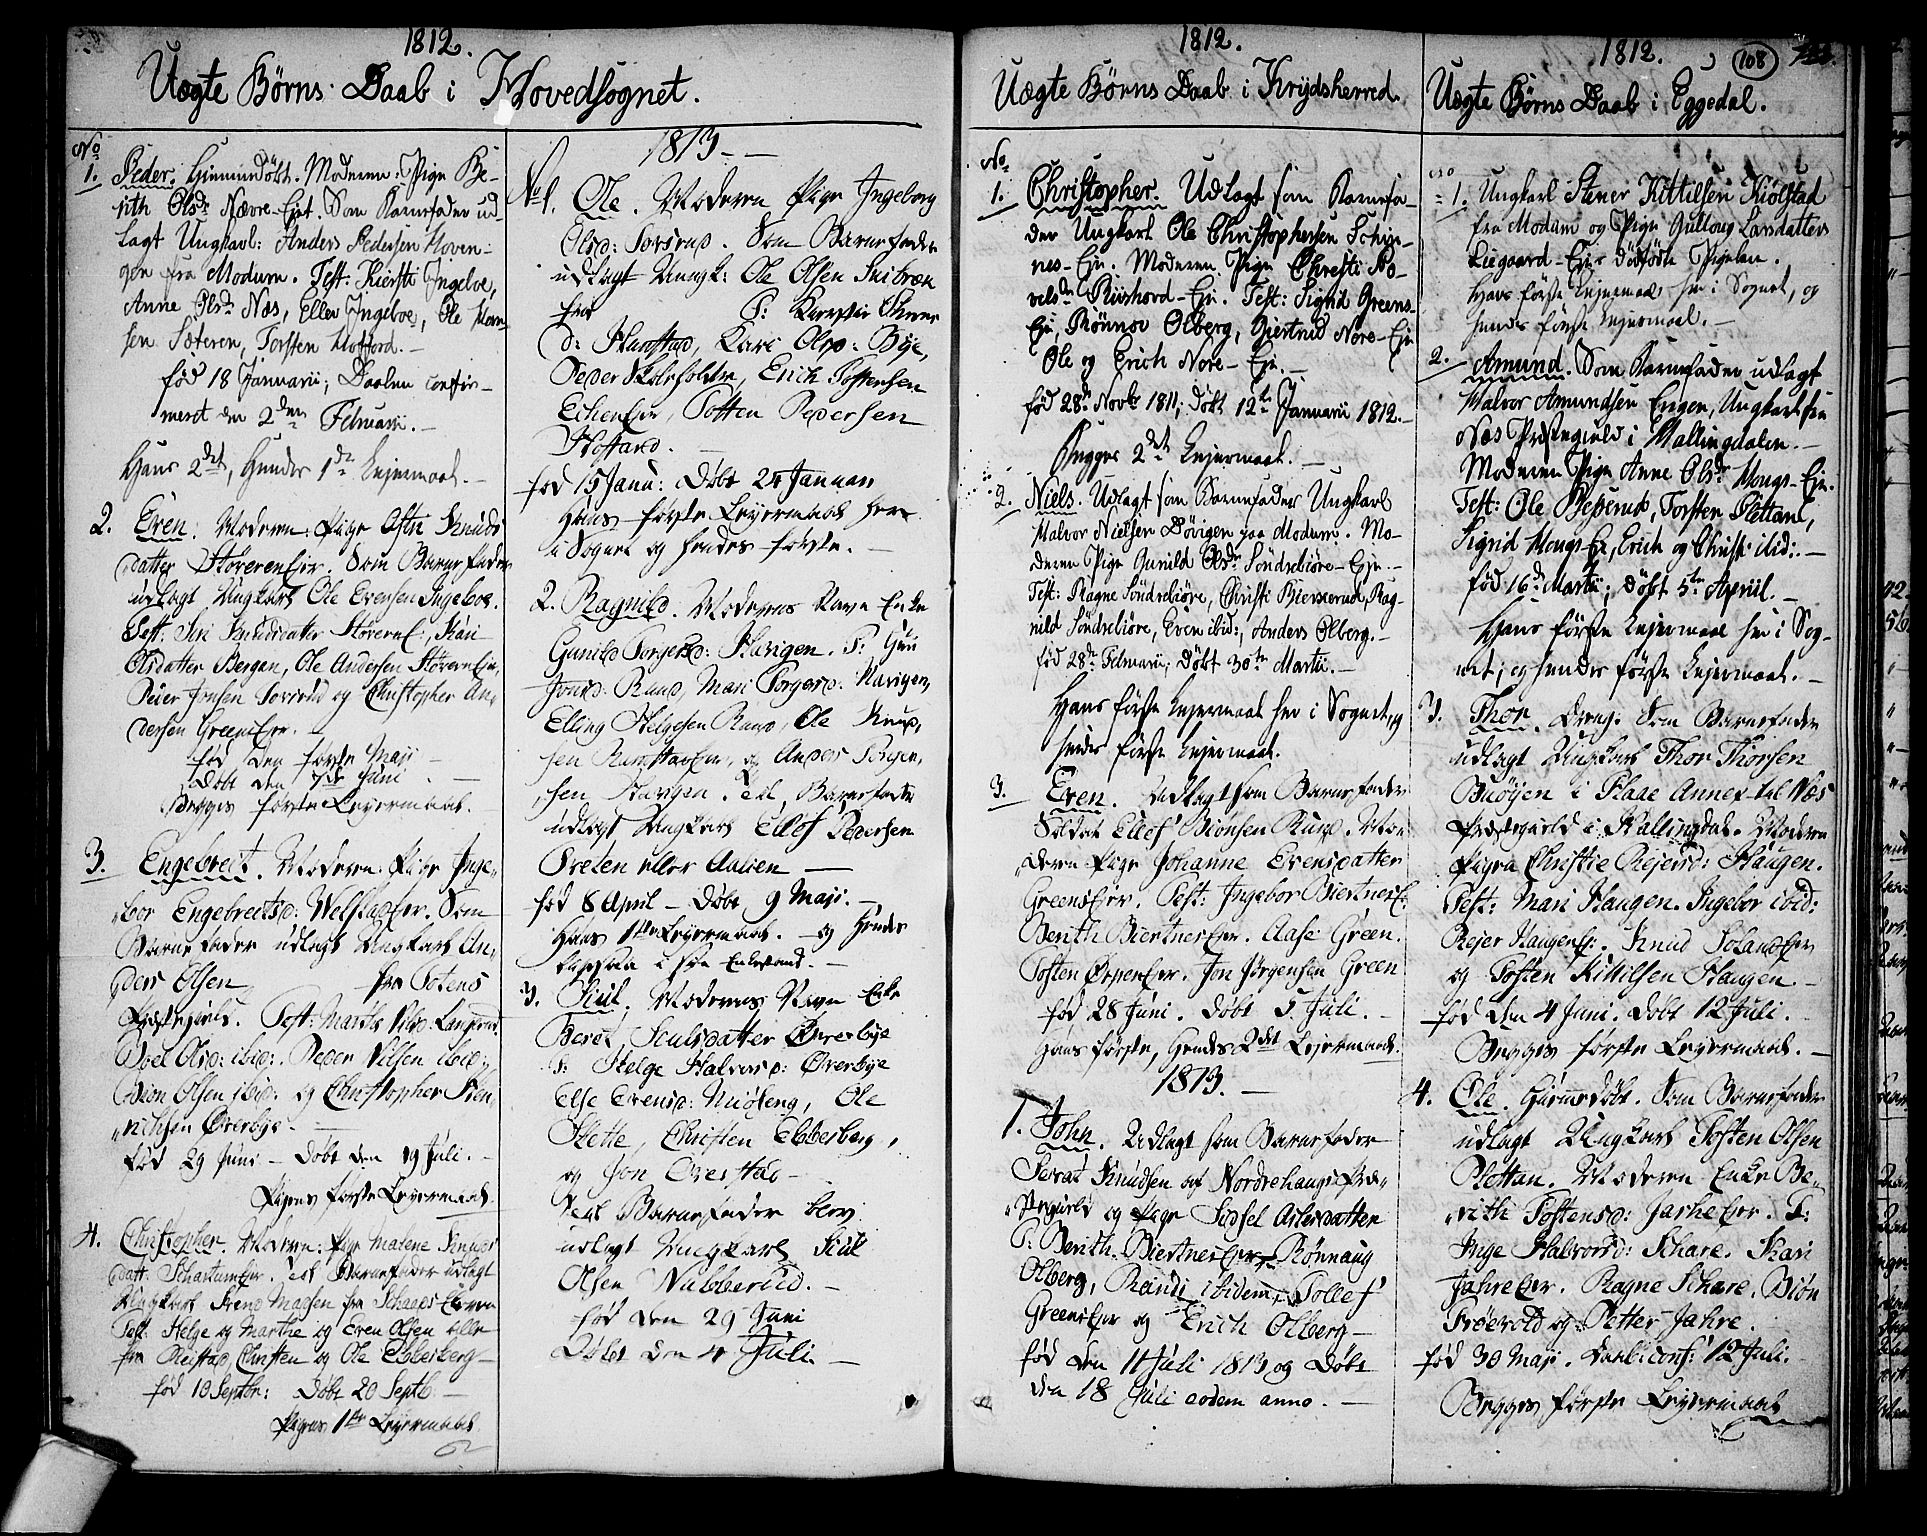 1812.
Uægte Børns Daab i Hovedsognet.
No
1. Peder. Hiemmedøbt. Moderen: Pige Be-
rith Olsdr Nævre-Eje. Som Barnefader ud-
lagt Ungkarl: Anders Pedersen Hoven-
gen fra Modum. Test: Kiersti Ingelbo,
Anne Olsdr Næs, Ellev Ingelboe, Ole
sen Sæteren, Torsten Hofford.
fød 18 Januarii; Daaben confir-
meret den 2den Februarii.
Hans 2det, Hendes 1te Lejermaal.
2. Even. Moderen: Pige Knuds
datter StøverenEjer. Som Barnefader
udlagt Ungkarl Ole Evensen Ingelboe.
Test: Siri Knudsdatter StøverenE:, Kari
Olsdatter Bergan, Ole Andersen StøverenEje,
Peder Jonsen og Christopher An-
dersen GreenEjer.
fød den første Maji
Døbt den 7de Juni
Begges første Leyermaal.
3. Engebreit. Moderen: Pige Inge-
bor Engebreitsd: WelstadEjer. Som
Barnefader udlagt Ungkarl An-
ders Olsen fra Totens
Præstegield. Test: Marthe Nilsd:
Joel Olsd: ibid:. Peder Nilsen ibid:,
Biøn Olsen ibid: og Christopher Hen-
richsen Øverbye.
fød 29 Juni - Døbt den 19 Juli.
Pigens første Leyermaal.
4. Christopher. Moderen: Pige Malene Knuds
datt: SchartumEjer. Til Barnefader udlagt
Ungkarl Svend Madsen fra
Test: Helge og Marthe og Even Olsen
fra Christen og Ole Ebbesberg
fød 10 Septbr: Døbt 20 Septb:
Pigens 1ste Leyermaal.
1813
No 1. Ole. Moderen Pige Ingeborg
Olsd: Som Barnefader
udlagt Ungk: Ole Olsen
fra T:
d: Hanstad, Kari Olsd: Bye,
Peder Skoleholder, Erich Tostensen
Totten Pedersen
Hoffard.
fød 15 Janu: Døbt 24 Januari
Hans første Leyermaal her
i Sognet og hendes første.
2. Ragnild. Moderens Navn Enke
Gunild Torgersd: Havigen. T: Guri
Jonsd: Ruud, Mari Torgersd: Havigen,
Elling Helgesen Ruud, Ole Knud-
sen og Anders Torger-
sen Havigen. Til Barnefader
udlagt Ungkarl Ellef Pedersen
Breten eller Aasen
fød 8 April - Døbt 9 Maji.
Hans 1ste Leyermaal. og Hendes
ligesaa i sin Enkestand.
3. Siul. Moderens Navn Enke
Beret Siulsdatter Øverbye
T: Helge Halvorsd: Øverbye
Else Evensd: Miøleng, Ole
Slette, Christen Ebbesberg,
og Jon Overstad
Til Barnefader blev
udlagt Ungkarl Siul
Olsen Wabberud.
fød den 29 Juni
Døbt den 4 Juli.
1812.
Uægte Børns Daab i Krydsherred.
No
1. Christopher. Udlagt som Barnefa-
der Ungkarl Ole Christophersen Schin-
nes-Eje. Moderen Pige Christi No-
velsdr Riishovd-Eje. Test: Sigrid Greens-
Eje, Rønnov Olberg, Giertrud Nore-Eje
Ole og Erich Nore-Eje.
fød 28de Novbr 1811; døbt 12te Januarii 1812.
Begges 2det Lejermaal.
2. Niels. Udlagt som Barnefader Ungkarl
Halvor Nielsen Døvigen paa Modum. Mo-
deren Pige Gunild Olsdr Søndrebiøre-Eje.
Test: Ragne Søndrebiøre, Christi Bierkerud, Rag-
nild Søndrebiøre, Even ibid:, Anders Olberg.
fød 28de Februarii; døbt 30te Martii.
Hans første Lejermaal her i Sognet, og
hendes første Lejermaal.
3. Even. Udlagt som Barnefader
Soldat Ellef Biønsen Ruud. Mo-
deren Pige Johanne Evensdatter
GreensEjer. Test: Ingebor BiertnesE:
Berith BiertnesEjer. Aase Green.
Tosten Ejer. Jon Jørgensen Green
fød 28 Juni. døbt 5 Juli.
Hans første, Hendes 2det Leyermaal.
1813.
1. John. Udlagt som Barnefader
Sivert Knudsen af Nordrehaugs Præ-
stegield og Pige Sidsel Aslesdatter
T: Berith BiertnesEjer, Rønnaug
Olberg, Randi ibidem, Tollef
GreensEjer og Erich Olberg
fød den 11 Juli 1813 og Døbt
den 18 Juli eodem anno.
1812.
108
Uægte Børns Daab i Eggedal.
No
1. Ungkarl Stener Kittilsen Kiølstad
fra Modum og Pige Gulloug Larsdatter
Liegaard-Eje dødfødt Pigebarn.
Hans første Lejermaal her i Sognet, og
hendes første Lejermaal.
2. Amund. Som Barnefader udlagt
Halvor Amundsen Engen, Ungkarl fra
Næs Præstegield i Hallingdalen.
Moderen Pige Anne Olsdr Hougs-Eje.
Test: Ole Besserud, Torsten Plettan,
Sigrid Hougs-E, Erich og Christi ibid:.
fød 16de Martii; døbt 5te Aprill.
Hans første Lejermaal her i Sog-
net; og hendes første Lejermaal.
3. Thor. Dreng. Som Barnefader
udlagt Ungkarl Thor Thorsen
Buøyen i Flaae Annex til Næs
Præstegield i Hallingdal. Moderen
Pigen Christie Rejersd: Haugen.
Test: Mari Haugen. Ingebor ibid:
Rejer HaugenE:. Knud SolandEjer
og Tosten Kittilsen Haugen.
fød den 4 Juni. døbt 12 Juli.
Begges første Leyermaal.
4. Ole. Hiemmedøbt. Som Barnefader
udlagt Ungkarl Tosten Olsen
Plettan. Moderen Enke Be-
rith Tostensd: JarheEjer. T:
Inge Halvorsd: Schare. Kari
JahreEjer. Ragne Schare. Biøn
Frøevold og Petter Jahre.
fød 30 Maji. Daab: conf: 12 Juli.
Begges første Leyermaal